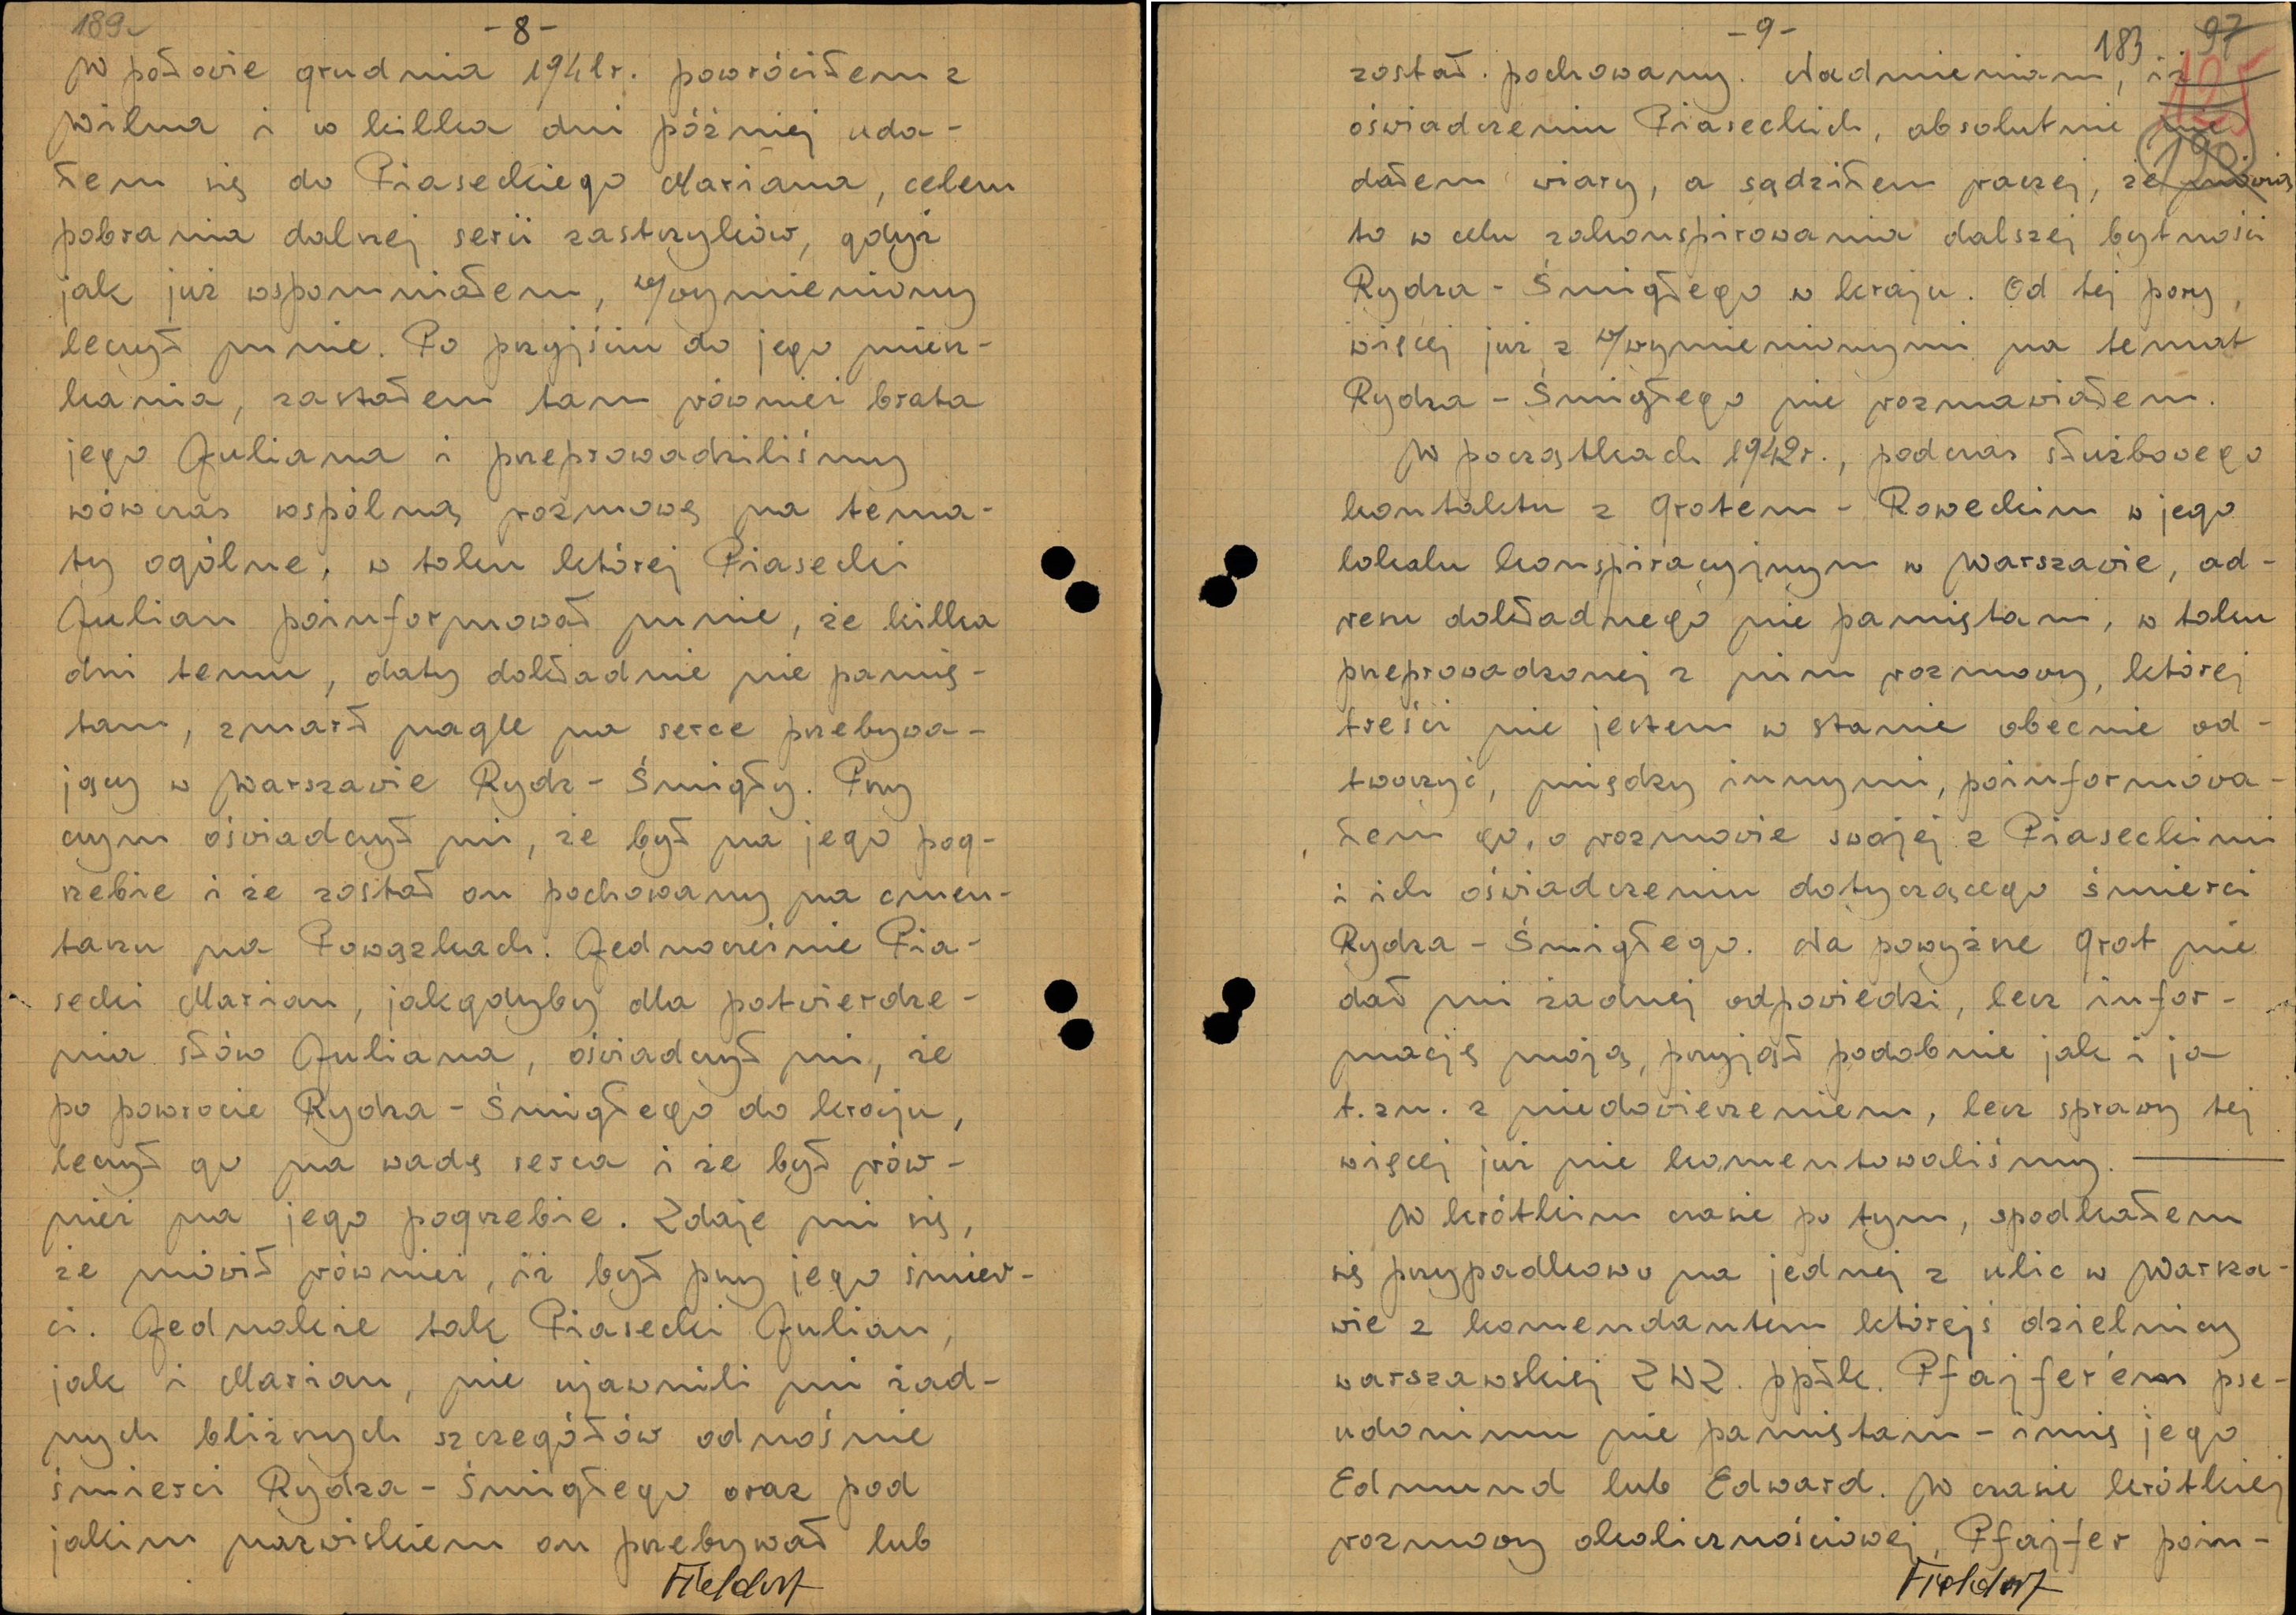 189v
-8-
W połowie grudnia 1941r. powróciłem z
Wilna i w kilka dni później uda-
łem się do Piaseckiego Mariana, celem
pobrania dalszej serii zastrzyków, gdyż
jak już wspomniałem, w/wymieniony
leczył mnie. Po przyjściu do jego miesz-
kania, zastałem tam również brata
jego Juliana i przeprowadziliśmy
wówczas wspólną rozmowę na tema-
ty ogólne, w toku której Piasecki
Julian poinformował mnie, że kilka
dni temu, daty dokładnie nie pamię-
tam, zmarł nagle na serce przebywa-
jący w Warszawie Rydz-Śmigły. Przy
czym oświadczył mi, że był na jego pog-
rzebie i że został on pochowany na cmen-
tarzu na Powązkach. Jednocześnie Pia-
secki Marian, jakgdyby dla potwierdze-
nia słów Juliana, oświadczył mi, że
po powrocie Rydza-Śmigłego do kraju,
leczył go na wadę serca i że był rów-
nież na jego pogrzebie. Zdaje mi się,
że mówił również, iż był przy jego śmier-
ci. Jednakże tak Piasecki Julian,
jak i Marian, nie ujawnili mi żad-
nych bliższych szczegółów odnośnie
śmierci Rydza-Śmigłego oraz pod
jakim nazwiskiem on przebywał lub
Fieldorf
-9-
183
97
125
190
został pochowany. Nadmieniam, iż
oświadczeniu Piaseckich, absolutnie nie
dałem wiary, a sądziłem raczej, że mówią
to w celu zakonspirowania dalszej bytności
Rydza-Śmigłego w kraju. Od tej pory,
więcej już z w/wymienionymi na temat
Rydza-Śmigłego nie rozmawiałem.
W początkach 1942r., podczas służbowego
kontaktu z Grotem-Roweckim w jego
lokalu konspiracyjnym w Warszawie, ad-
resu dokładnego nie pamiętam, w toku
przeprowadzonej z nim rozmowy, której
treści nie jestem w stanie obecnie od-
tworzyć, między innymi, poinformowa-
łem go, o rozmowie swojej z Piaseckimi
i ich oświadczeniu dotyczącego śmierci
Rydza-Śmigłego. Na powyższe Grot nie
dał mi żadnej odpowiedzi, lecz infor-
mację moją, przyjął podobnie jak i ja
t.zn. z niedowierzeniem, lecz sprawy tej
więcej już nie komentowaliśmy.
W krótkim czasie po tym, spodkałem
się przypadkowo na jednej z ulic w Warsza-
wie z komendantem którejś dzielnicy
warszawskiej ZWZ. ppłk. Pfajfer'em pse-
udonimu nie pamiętam - imię jego
Edmund lub Edward. W czasie krótkiej
rozmowy okolicznościowej, Pfajfer poin-
Fieldorf